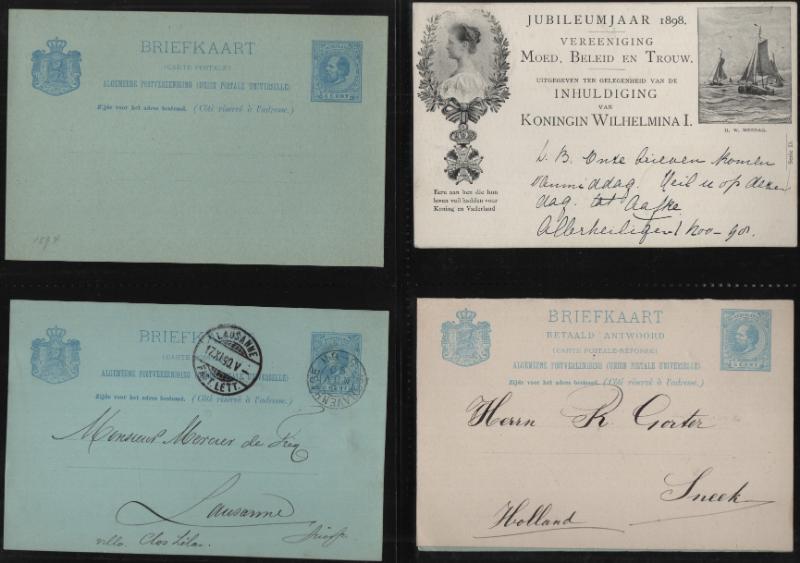 BRIEFKAART
(CARTE POSTALE)
ALGEMEENE POSTVEREENIGING (UNION POSTALE UNIVERSELLE)
Zijde voor het adres bestemd. (Côté réservé à l'adresse.)
5 CENT
1894
JUBILEUMJAAR 1898.
VEREENIGING
MOED, BELEID EN TROUW.
UITGEGEVEN TER GELEGENHEID VAN DE
INHULDIGING
VAN
KONINGIN WILHELMINA I.
H. W. MESDAG.
Serie D.
Eere aan hen die hun
leven veil hadden voor
Koning en Vaderland
L. B. Onze brieven komen
vanmiddag. Heil u op dezen
dag. tt Aafke
Allerheiligen 1 Nov - 901
BRIEFKAART
(CARTE
ALGEMEENE POSTVEREENIGING
Zijde voor het adres bestemd. (Côté réservé à l'adresse.)
LAUSANNE
17.XI.92.V
EXP. LETT.
'S GRAVENHAGE
Monsieur Mercier de
Lausanne
villa Clos
BRIEFKAART
BETAALD ANTWOORD
(CARTE POSTALE-RÉPONSE)
ALGEMEENE POSTVEREENIGING (UNION POSTALE UNIVERSELLE)
Zijde voor het adres bestemd. (Côté réservé à l'adresse.)
5 CENT
Herrn R Gorter
Sneek
Holland